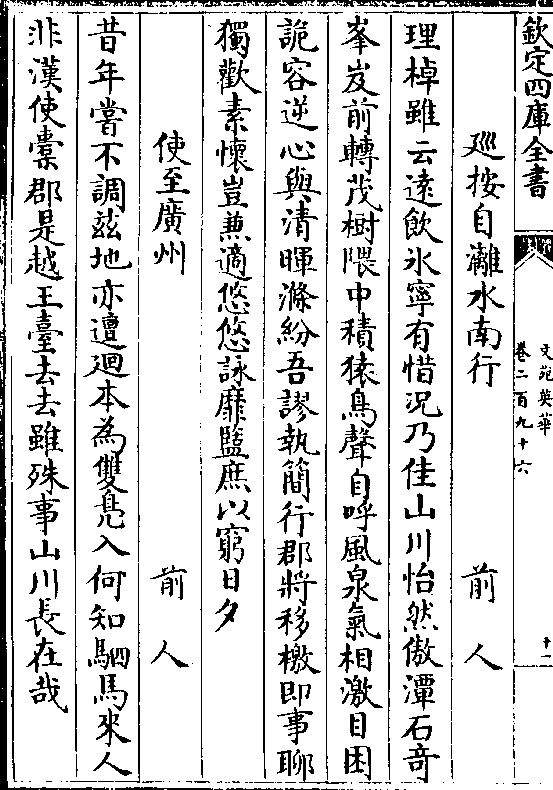 欽定四庫全書
文苑英華
卷二百九十六
十一
廵按自灕水南行
前人
理棹雖云遠飲氷寧有惜況乃佳山川怡然傲潭石竒
峯岌前轉茂樹隈中積猿鳥聲自呼風泉氣相激目困
詭容逆心與清暉滌紛吾謬執簡行郡將移檄即事聊
獨歡素懷豈兼適悠悠詠靡盬庶以窮日夕
使至廣州
前人
昔年嘗不調兹地亦邅迴本為雙鳬入何知駟馬來人
非漢使槖郡是越王臺去去雖殊事山川長在哉